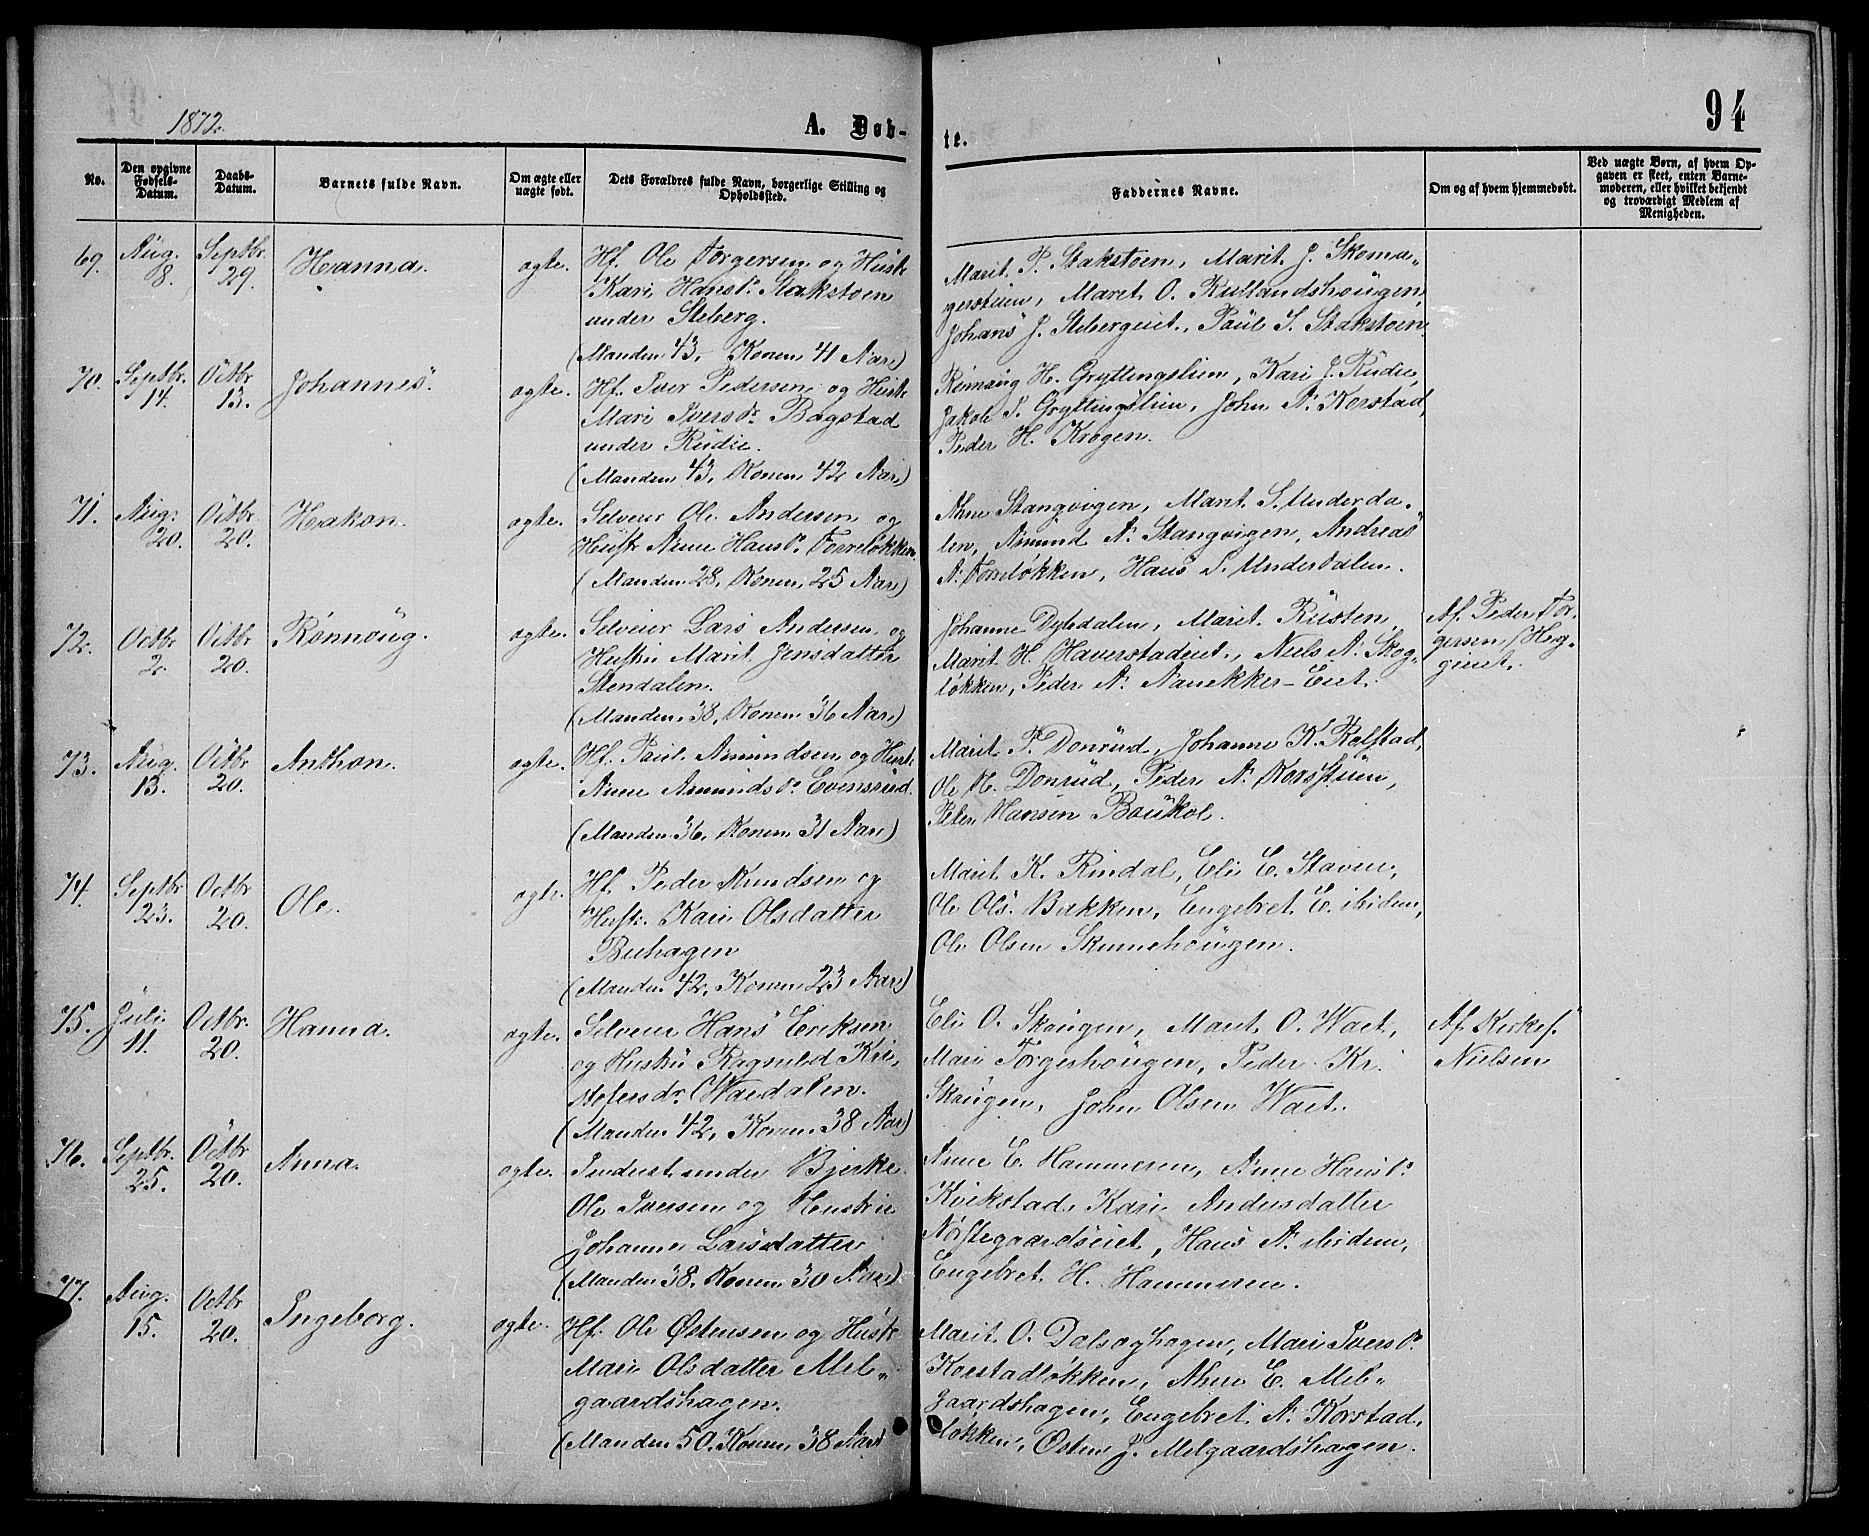 1872.
A. Døb-
te.
94
No.
Den opgivne Fødsels-Datum.
Daabs-Datum.
Barnets fulde Navn.
Om ægte eller uægte født.
Dets Forældres fulde Navn, borgerlige Stilling og Opholdssted.
Faddernes Navne.
Om og af hvem hjemmedøbt.
Ved uægte Børn, af hvem Op-
gaven er skeet, enten Barne-
moderen, eller hvilket bekjendt
og troværdigt Medlem af
Menigheden.
69. Aug. 8. Septbr. 29. Hanna. ægte.
Hf. Ole Torgersen og Hustr.
Kari Hansd. Stakstoen
under Steberg.
(Manden 43, Konen 41 Aar)
Marit P. Stakstoen, Marit J. Skoma-
gerstuen, Maret O. Kullandshougen,
Johans J. Stebergeiet, Paul S. Stakstoen.
70. Septbr. 14. Octbr. 13. Johannes. ægte.
Hf. Iver Pedersen og Hustr.
Mari Iversd. Bagstad
under Rudie.
(Manden 43, Konen 42 Aar)
Rønnaug H. Gryttingslien, Kari J. Rudie,
Jakob P. Gryttingslien, John A. Korstad,
Peder H. Krogen.
71. Aug. 20. Octbr. 20. Hakon. ægte.
Selveier Ole Andersen og
Hustr. Anne Hansd. Torreløkken.
(Manden 28, Konen 25 Aar)
Anne Stangvigen, Marit S. Underda-
len, Amund A. Stangvigen, Andreas
A. Torreløkken, Hans S. Underdalen.
72. Octbr. 2. Octbr. 20. Rønnoug. ægte.
Selveier Lars Andersen og
Hustru Marit Jensdatter
Stendalen.
(Manden 38, Konen 36 Aar)
Johanne Dybdalen, Marit Rusten,
Marit H. Haverstadeiet, Niels A. Skog-
løkken, Peder A. Eiet.
Af Peder Tor-
gersen Heg-
geiet.
73. Aug. 13. Octbr. 20. Anthon. ægte.
Hf. Paul Amundsen og Hust.
Anne Amundsd. Evensrud.
(Manden 36, Konen 31 Aar)
Marit P. Donrud, Johanne K. Kolstad,
Ole M. Donrud, Peder A. Korsstuen,
Peter Hansen Boukol.
74. Septbr. 23. Octbr. 20. Ole. ægte.
Hf. Peder Knudsen og
Hustr. Kari Olsdatter
Buhagen
(Manden 42, Konen 23 Aar)
Marit K. Rindal, Eli E. Staven,
Ole Ols. Bakken, Engebret E. ibidem,
Ole Olsen Skinnehougen.
75. Juli 11. Octbr. 20. Hanna. ægte.
Selveier Hans Eriksen
og Hustru Ragnild Kri-
stofersdr. Waedalen.
(Manden 42, Konen 38 Aar)
Eli O. Skougen, Marit O. Waet,
Mari Torgershougen, Peder Kr.
Skougen, John Olsen Waet.
Af Kirkes.
Nielsen
76. Septbr. 25. Octbr. 20. Anna. ægte.
Inderst under Bjerke
Ole Iversen og Hustru
Johanne Larsdatter
(Manden 38, Konen 30 Aar)
Anne E. Hammeren, Anne Hansd.
Kvikstad, Kari Andersdatter
Nørstegaardseiet, Hans A. ibidem,
Engebret H. Hammeren.
77. Aug. 15. Octbr. 20. Ingeborg. ægte.
Hf. Ole Østensen og Hustr.
Mari Olsdatter Mel-
gaardshagen.
(Manden 50, Konen 38 Aar)
Marit O. Dalsøghagen, Mari Iversd.
Korstadløkken, Anne E. Mel-
gaardshagen, Engebret A. Korstad-
løkken, Østen J. Melgaardshagen.